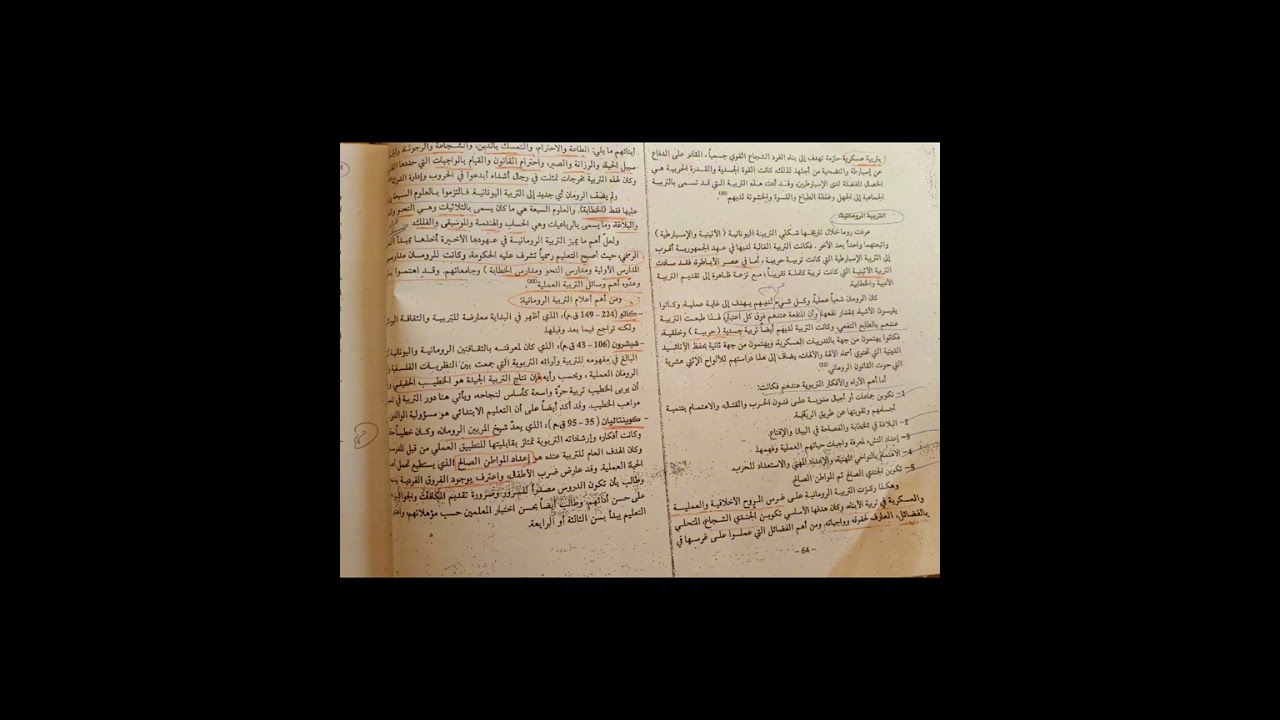 بتربية عسكرية حازمة تهدف إلى بناء الفرد الشجاع القوي جسمياً، القادر على الدفاع
عن إسبارطة والتضحية من أجلها. لذلك كانت القوة الجسدية والقدرة الحربية هي
الخصال المفضلة لدى الإسبارطيين. وقد أدت هذه التربية التي قد تسمى بالتربية
الجماعية إلى الجهل وغلظة الطباع والقسوة والخشونة لديهم
التربية الرومانية:
عرفت روما خلال تاريخها شكلي التربية اليونانية ( الأثينية والإسبارطية )
واتبعتهما واحداً بعد الآخر. فكانت التربية الغالبة لديها في عهد الجمهورية أقرب
إلى التربية الإسبارطية التي كانت تربية حربية، أما في عصر الأباطرة فقد سادت
التربية الأثينية التي كانت تربية كاملة تقريباً، مع نزعة ظاهرة إلى تقديم التربية
الأدبية والخطابية.
كان الرومان شعباً عملياً، وكل شيء لديهم يهدف إلى غاية عملية، وكانوا
يقيسون الأشياء بمقدار نفعها وأن المنفعة عندهم فوق كل اعتبار، لهذا طبعت التربية
عندهم بالطابع النفعي. وكانت التربية لديهم أيضاً تربية جسدية ( حربية ) وخلقية،
فكانوا يهتمون من جهة بالتدريبات العسكرية، ويهتمون من جهة ثانية بحفظ الأناشيد
الدينية التي تحتوي أسماء الآلهة والآلهات، يضاف إلى هذا دراستهم للألواح الاثني عشرية
التي حوت القانون الروماني
أما أهم الآراء والأفكار التربوية عندهم فكانت:
1- تكوين جماعات أو أجيال مدربة على فنون الحرب والقتال، والاهتمام بتنمية
أجسامهم وتقويتها عن طريق الرياضة.
2- البلاغة في الخطابة والفصاحة في البيان والإقناع.
3- إعداد النشء لمعرفة واجبات حياتهم العملية وفهمها.
4- الاهتمام بالنواحي المهنية، والإعداد المهني والاستعداد للحرب.
5- تكوين الجندي الصالح ثم المواطن الصالح.
وهكذا ركزت التربية الرومانية على غرس الروح الأخلاقية والعملية
والعسكرية في تربية الأبناء، وكان هدفها الأساسي تكوين الجندي الشجاع، المتحلي
بالفضائل، العارف لحقوقه وواجباته. ومن أهم الفضائل التي عملوا على غرسها في
- 64 -
أبنائهم ما يلي: الطاعة والاحترام، والتمسك بالدين، والشجاعة والرجولة،
سبيل الحياة والرزانة والصبر، واحترام القانون والقيام بالواجبات التي حددها
وكان لهذه التربية مخرجات تمثلت في رجال أشداء أبدعوا في الحروب وإدارة
لم يضف الرومان أي جديد إلى التربية اليونانية. فالتزموا بالعلوم السبعة
عليها فقط (الخطابة). والعلوم السبعة هي ما كان يسمى بالثلاثيات وهي النحو
والبلاغة، وما يسمى بالرباعيات وهي الحساب والهندسة والموسيقى والفلك.
ولعل أهم ما يميز التربية الرومانية في عهودها الأخيرة أخذها بمبدأ
الرسمي، حيث أصبح التعليم رسمياً تشرف عليه الحكومة، وكانت للرومان مدارس
المدارس الأولية ومدارس النحو ومدارس الخطابة ) وجامعاتهم. وقد اهتموا
وعدّوه أهم وسائل التربية العملية
ومن أهم أعلام التربية الرومانية:
- كاتو (224 - 149 ق.م)، الذي أظهر في البداية معارضة للتربية والثقافة
ولكنه تراجع فيما بعد وقبلها.
- شيشرون (106 - 43 ق.م)، الذي كان لمعرفته بالثقافتين الرومانية واليونانية
البالغ في مفهومه للتربية وآرائه التربوية التي جمعت بين النظريات
الرومان العملية، وبحسب رأيه فإن نتاج التربية الجيدة هو الخطيب الحقيقي
أن يربى الخطيب تربية حرّة واسعة كأساس لنجاحه، ويأتي هنا دور التربية في
مواهب الخطيب. وقد أكد أيضاً على أن التعليم الابتدائي هو مسؤولية
- كوينتاليان (35 - 95 ق.م)، الذي يعدّ شيخ المربين الرومان، وكان خطيباً
وكانت أفكاره وإرشاداته التربوية تمتاز بقابليتها للتطبيق العملي من قبل
وكان الهدف العام للتربية عنده هو إعداد المواطن الصالح الذي يستطيع تحمل
الحياة العملية. وقد عارض ضرب الأطفال، واعترف بوجود الفروق الفردية
وطالب بأن تكون الدروس مصدراً للسرور وضرورة تقديم المكافآت والجوائز
على حسن أدائهم، وطالب أيضاً بحسن اختيار المعلمين حسب مؤهلاتهم،
التعليم يبدأ بسن الثالثة أو الرابعة.